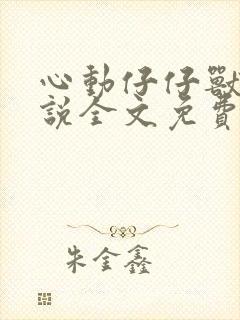 心動仔仔獸
說全文免費
朱金鑫